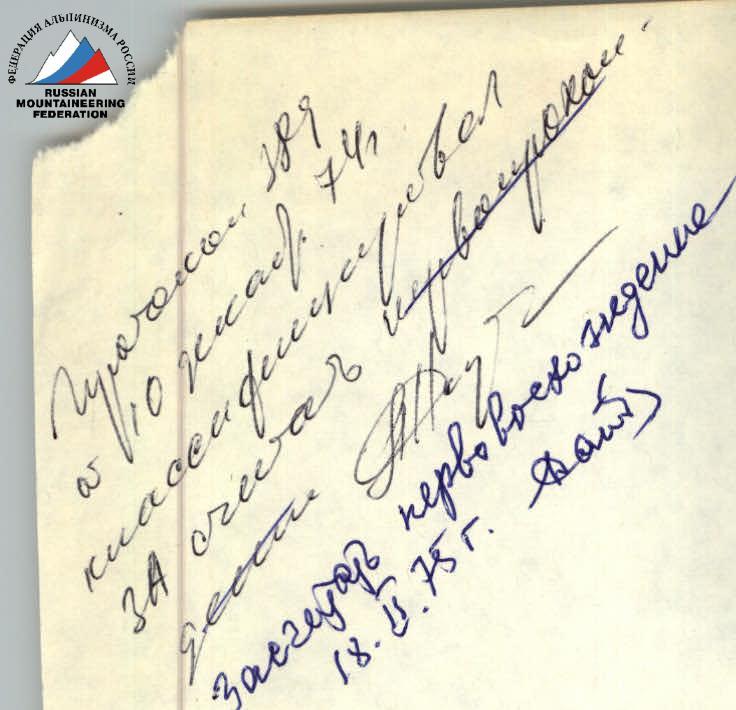 ФЕДЕРАЦИЯ АЛЬПИНИЗМА РОССИИ
RUSSIAN
MOUNTAINEERING
FEDERATION
Протокол 389
10 декаб. 74г
классифицировал
ЗА считать первопрохож-
дение
Засчитать первовосхождение
18.II.75г.